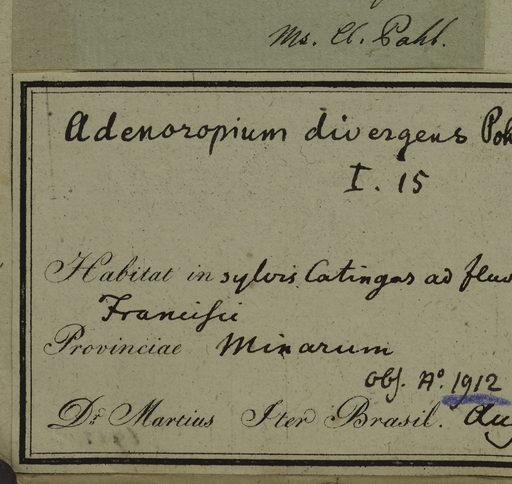 Ms. Cl. Pohl.
Adenoropium divergens Poh
I. 15
Habitat in sylvis Catingas ad fluv
Francisci
Provinciae Minarum
Obs. A°. 1912
Dr. Martius Iter Brasil. Aug